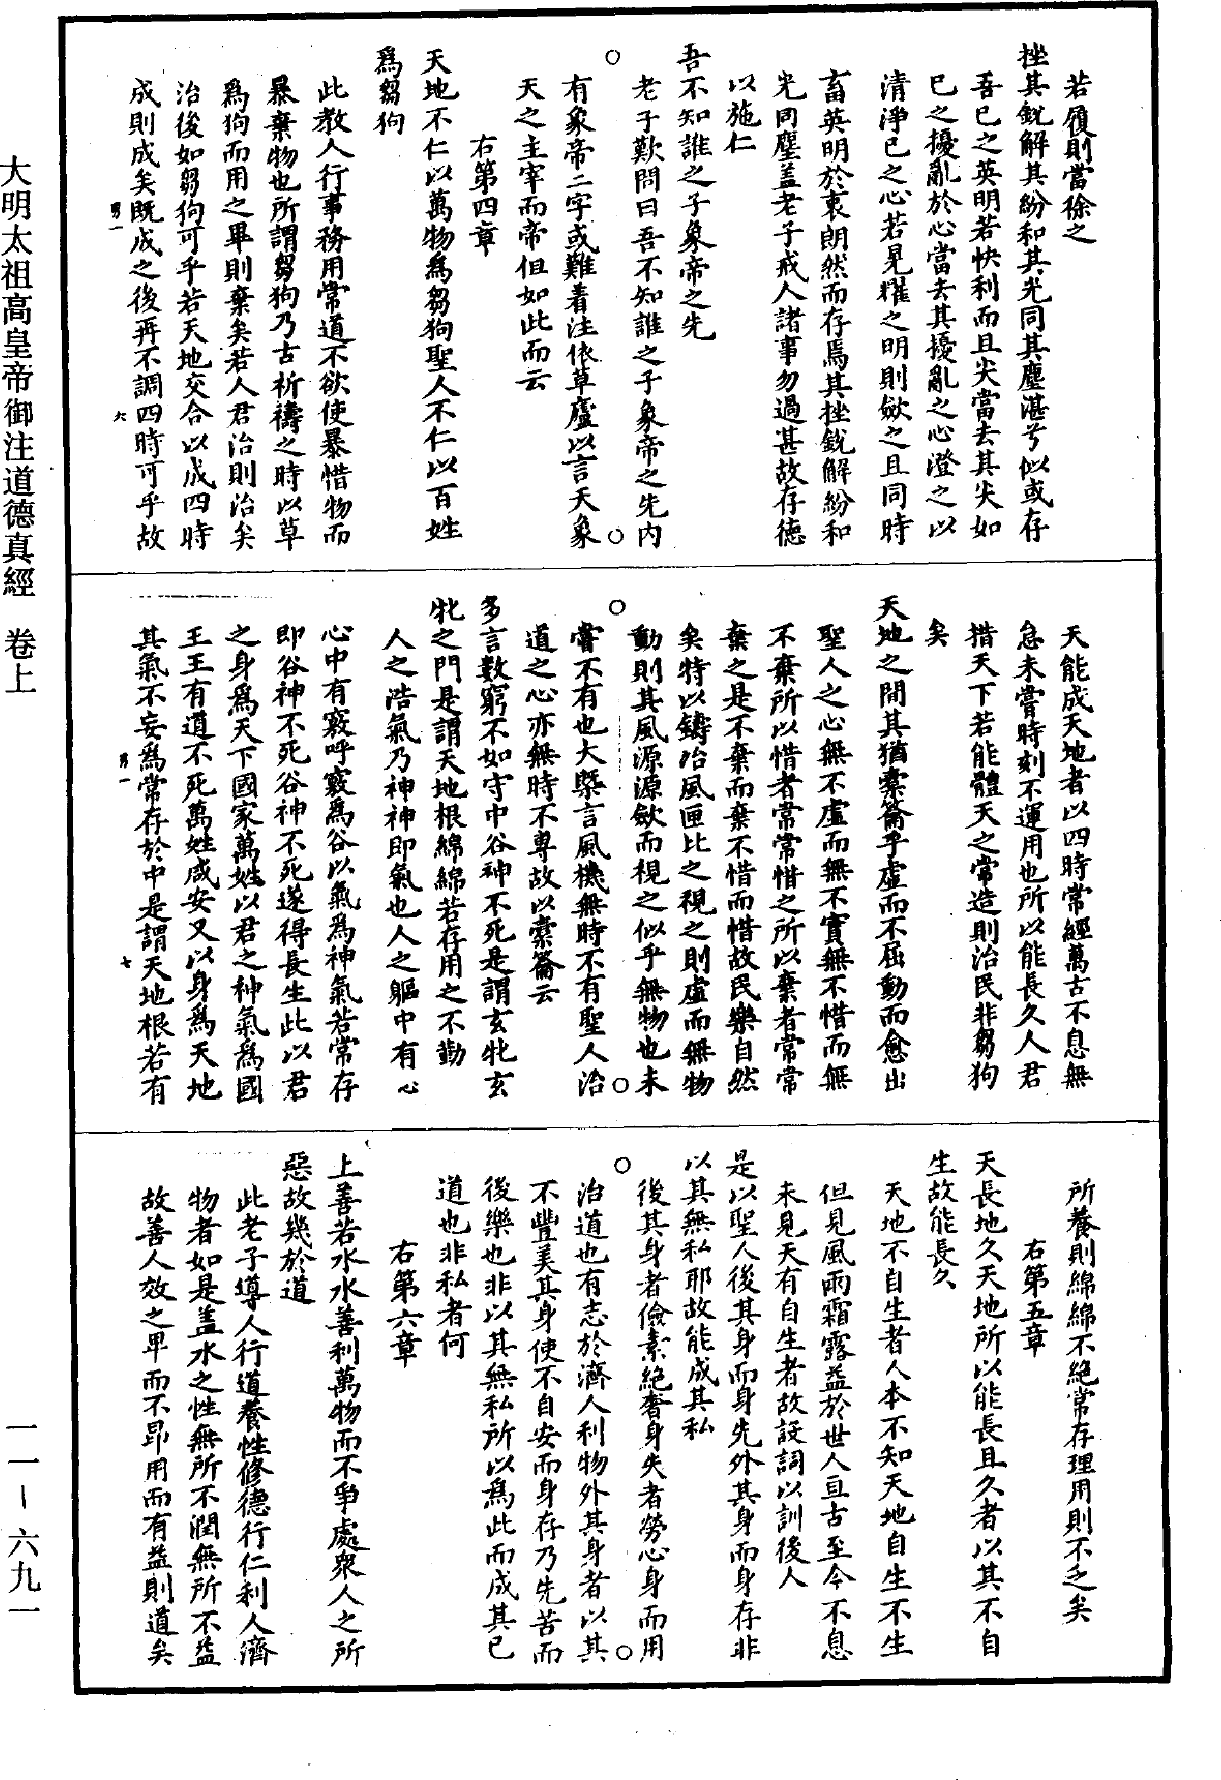 若履則當徐之
挫其銳解其紛和其光同其塵湛兮似或存
吾己之英明若快利而且尖當去其尖如
己之擾亂於心當去其擾亂之心澄之以
清淨己之心若晃耀之明則斂之且同時
畜英明於衷朗然而存焉其挫銳解紛和
光同塵盖老子戒人諸事勿過甚故存德
以施仁
吾不知誰之子象帝之先
老子歎問曰吾不知誰之子象帝之先内
有象帝二字或難着注依草廬以言天象
天之主宰而帝但如此而云
右第四章
天地不仁以萬物爲芻狗聖人不仁以百姓
爲芻狗
此教人行事務用常道不欲使暴惜物而
暴棄物也所謂芻狗乃古祈禱之時以草
爲狗而用之畢則棄矣若人君治則治矣
治後如芻狗可乎若天地交合以成四時
成則成矣既成之後再不調四時可乎故
六
天能成天地者以四時常經萬古不息無
怠未嘗時刻不運用也所以能長久人君
措天下若能體天之常造則治民非芻狗
矣
天地之間其猶橐籥乎虚而不屈動而愈出
聖人之心無不虚而無不實無不惜而無
不棄所以惜者常常惜之所以棄者常常
棄之是不棄而棄不惜而惜故民樂自然
矣特以鑄冶風匣比之視之則虚而無物
動則其風源源斂而視之似乎無物也未
嘗不有也大槩言風機無時不有聖人治
道之心亦無時不專故以橐籥云
多言數窮不如守中谷神不死是謂玄牝玄
牝之門是謂天地根綿綿若存用之不勤
人之浩氣乃神神即氣也人之軀中有心
心中有竅呼竅爲谷以氣爲神氣若常存
即谷神不死谷神不死遂得長生此以君
之身爲天下國家萬姓以君之神氣爲國
王王有道不死萬姓咸安又以身爲天地
其氣不妄爲常存於中是謂天地根若有
七
所養則綿綿不絶常存理用則不乏矣
右第五章
天長地久天地所以能長且久者以其不自
生故能長久
天地不自生者人本不知天地自生不生
但見風雨霜露益於世人亘古至今不息
未見天有自生者故設詞以訓後人
是以聖人後其身而身先外其身而身存非
以其無私耶故能成其私
後其身者儉素絶奢身失者勞心身而用
治道也有志於濟人利物外其身者以其
不豐美其身使不自安而身存乃先苦而
後樂也非以其無私所以爲此而成其己
道也非私者何
右第六章
上善若水水善利萬物而不爭處衆人之所
惡故幾於道
此老子導人行道養性修德行仁利人濟
物者如是盖水之性無所不潤無所不益
故善人效之卑而不昂用而有益則道矣
大明太祖高皇帝御注道德真經　卷上
一一－六九一